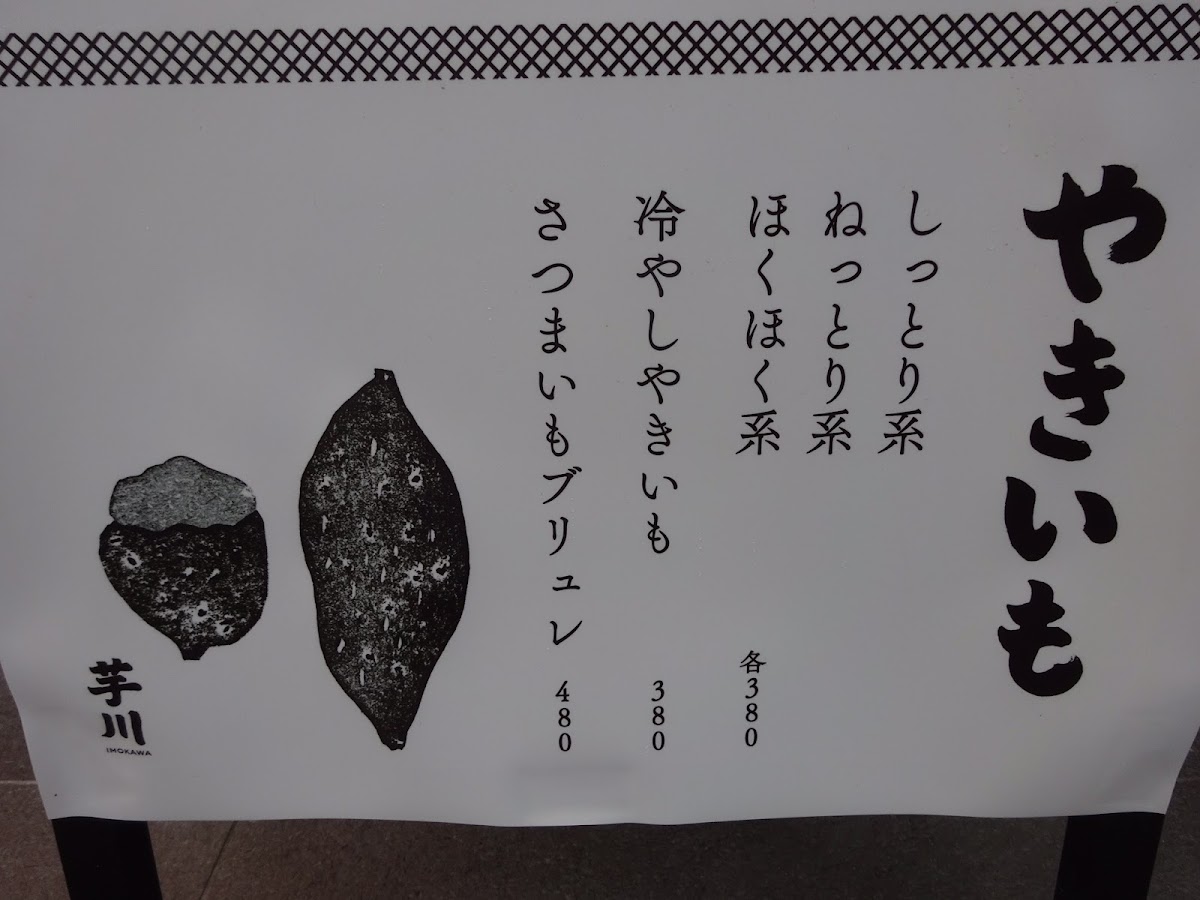 やきいも
しっとり系
ねっとり系
ほくほく系 各380
冷やしやきいも 380
さつまいもブリュレ 480
芋川
IMOKAWA